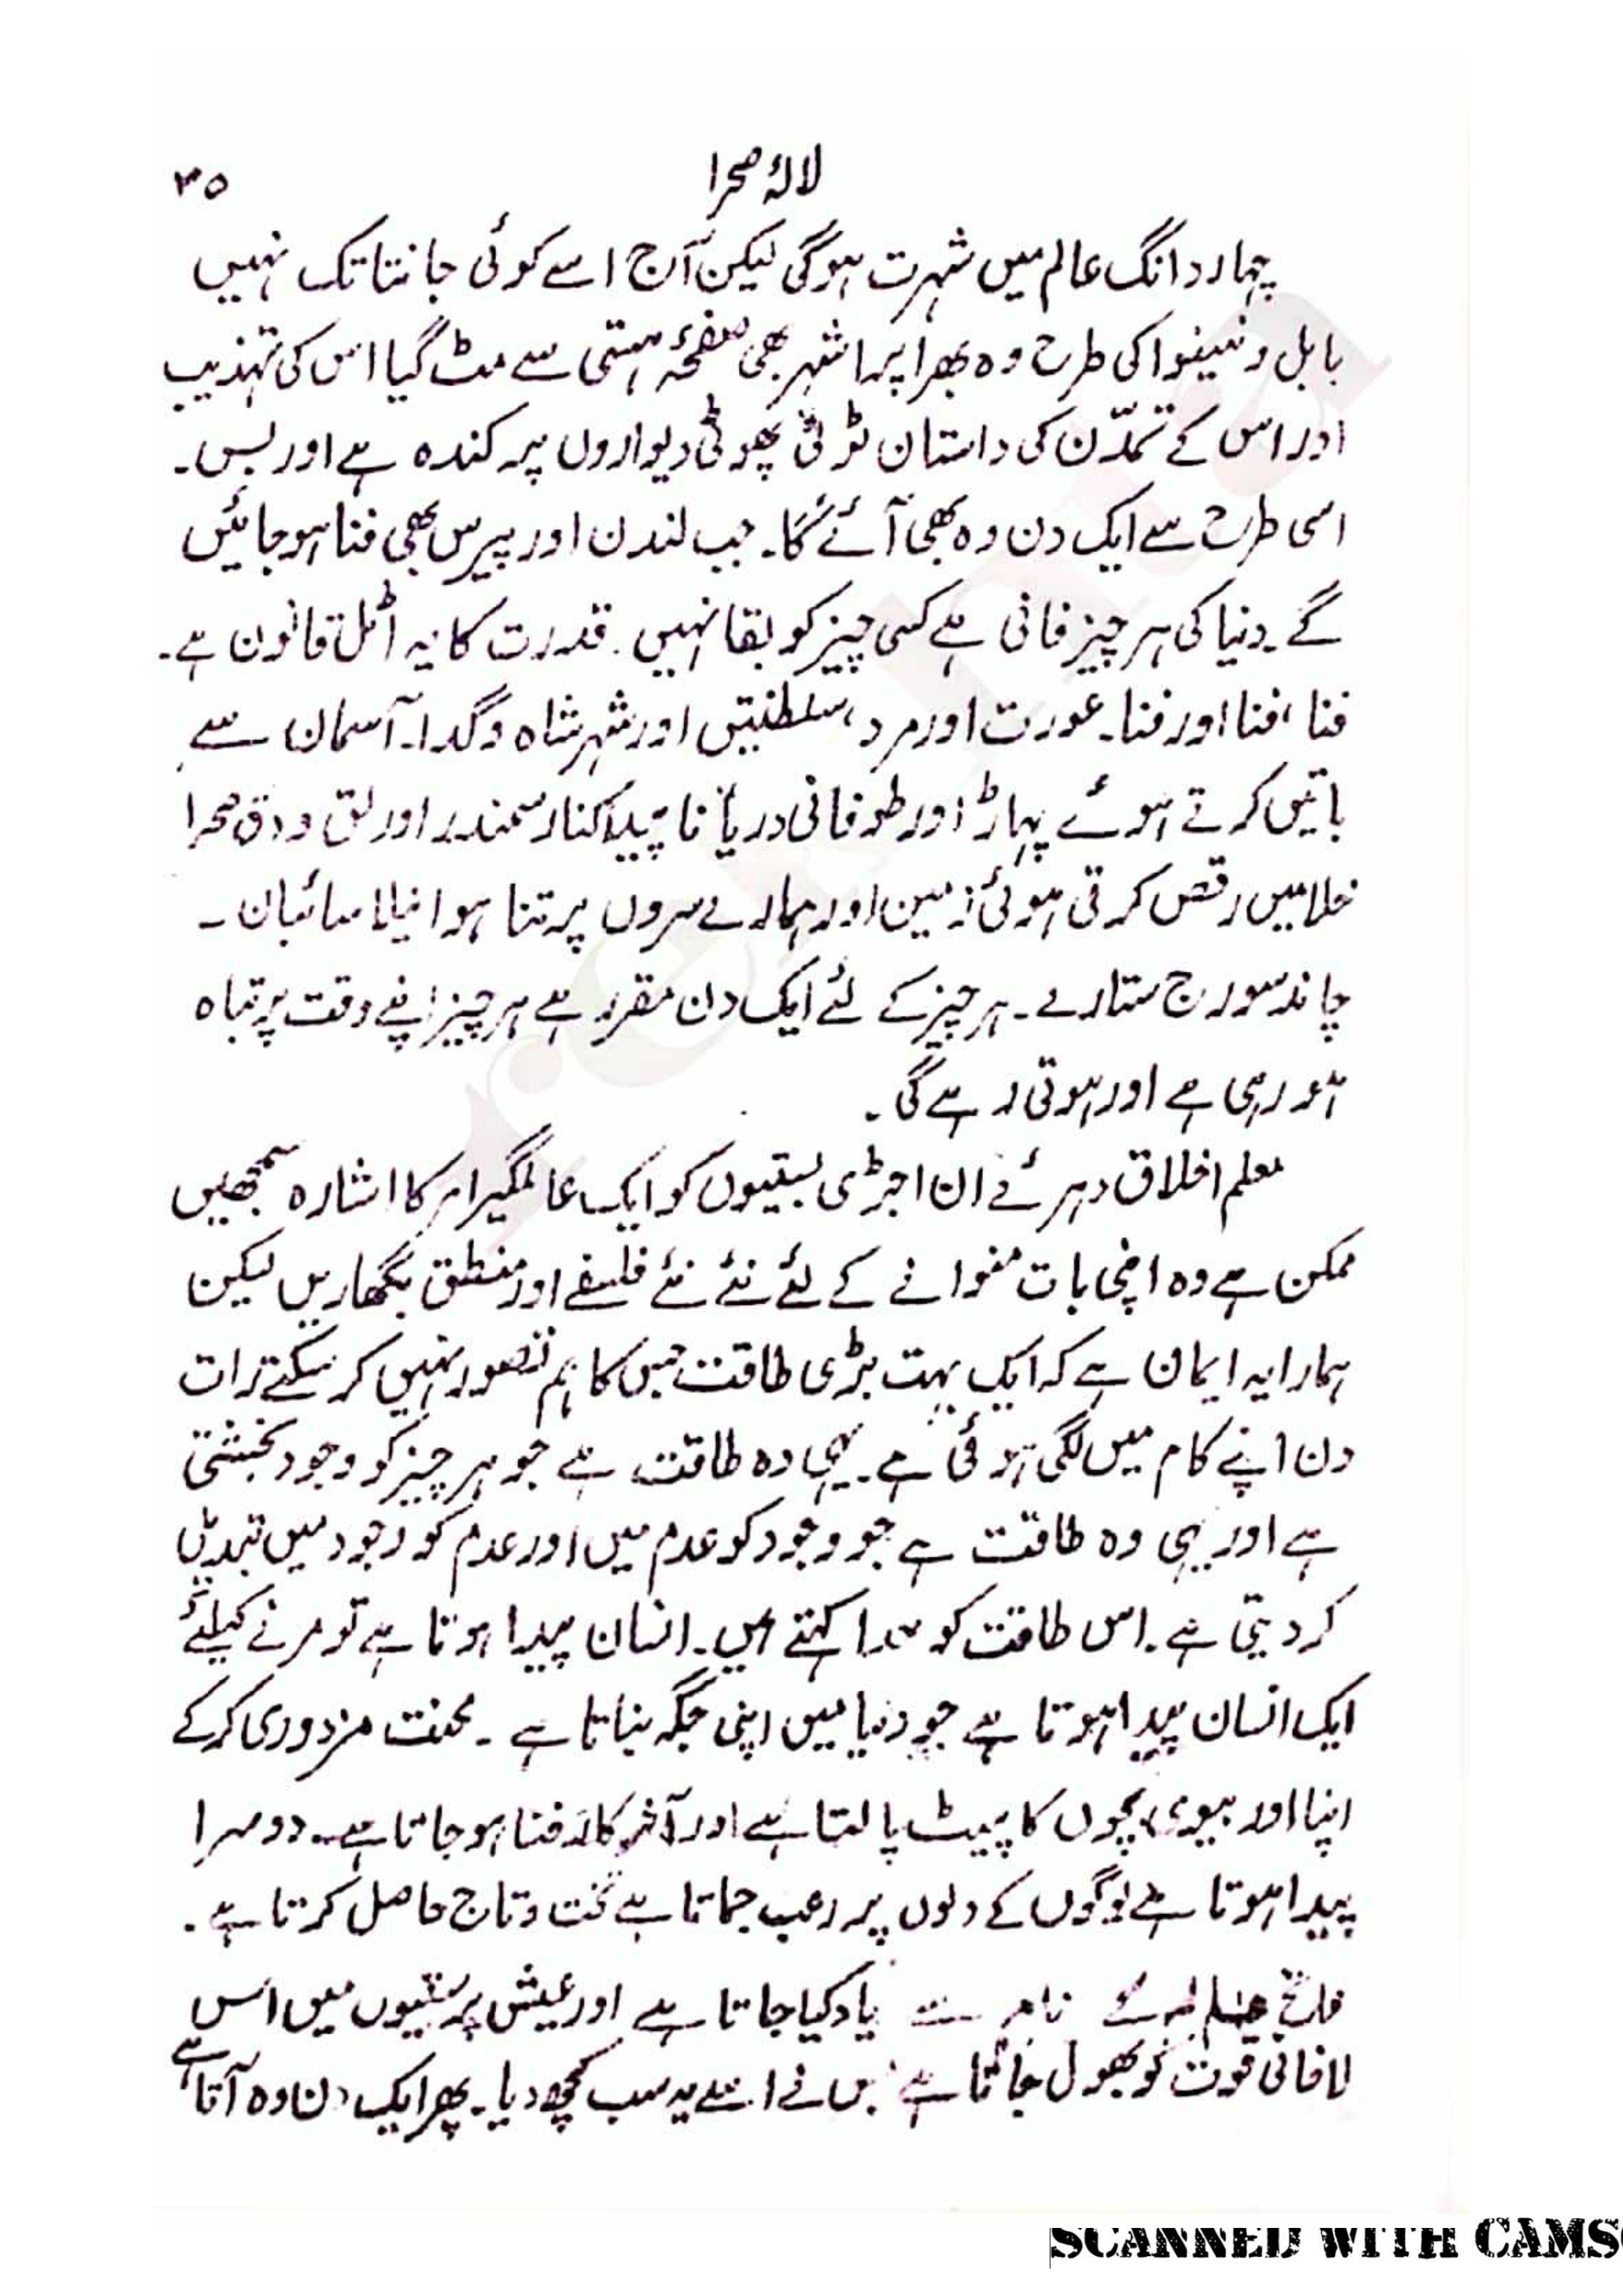 لالۂ صحرا
۳۵
چہار دانگ عالم میں شہرت ہوگی لیکن آج اسے کوئی جانتا تک نہیں
بابل و نینوا کی طرح وہ بھرا پرا شہر بھی صفحۂ ہستی سے مٹ گیا اس کی تہذیب
اور اس کے تمدّن کی داستان ٹوٹی پھوٹی دیواروں پر کندہ ہے اور بس۔
اسی طرح سے ایک دن وہ بھی آئے گا۔ جب لندن اور پیرس بھی فنا ہو جائیں
گے۔ دنیا کی ہر چیز فانی ہے کسی چیز کو بقا نہیں۔ قدرت کا یہ اٹل قانون ہے۔
فنا، فنا اور فنا۔ عورت اور مرد، سلطنتیں اور شہر شاہ و گدا۔ آسمان سے
باتیں کرتے ہوئے پہاڑ اور طوفانی دریا نا پیدا کنار سمندر اور لق و دق صحرا
خلا میں رقص کرتی ہوئی زمین اور ہمارے سروں پر تنا ہوا نیلا سائبان۔
چاند سورج ستارے۔ ہر چیز کے لئے ایک دن مقرر ہے ہر چیز اپنے وقت پر تباہ
ہو رہی ہے اور ہوتی رہے گی۔
معلم اخلاق دہرئے ان اجڑی بستیوں کو ایک عالمگیر امر کا اشارہ سمجھیں
ممکن ہے وہ اپنی بات منوانے کے لئے نئے نئے فلسفے اور منطق بگھاریں لیکن
ہمارا یہ ایمان ہے کہ ایک بہت بڑی طاقت جس کا ہم تصور نہیں کر سکتے رات
دن اپنے کام میں لگی ہوئی ہے۔ یہی وہ طاقت ہے جو ہر چیز کو وجود بخشتی
ہے اور یہی وہ طاقت ہے جو وجود کو عدم میں اور عدم کو وجود میں تبدیل
کر دیتی ہے۔ اس طاقت کو خدا کہتے ہیں۔ انسان پیدا ہوتا ہے تو مرنے کیلئے
ایک انسان پیدا ہوتا ہے جو دنیا میں اپنی جگہ بناتا ہے۔ محنت مزدوری کر کے
اپنا اور بیوی بچوں کا پیٹ پالتا ہے اور آخر کار فنا ہو جاتا ہے۔ دوسرا
پیدا ہوتا ہے لوگوں کے دلوں پر رعب جماتا ہے تخت و تاج حاصل کرتا ہے۔
فاتح عالم کے نام سے یاد کیا جاتا ہے اور عیش پرستیوں میں اس
لافانی قوت کو بھول جاتا ہے جس نے اسے یہ سب کچھ دیا۔ پھر ایک دن وہ آتا ہے
SCANNED WITH CAMS